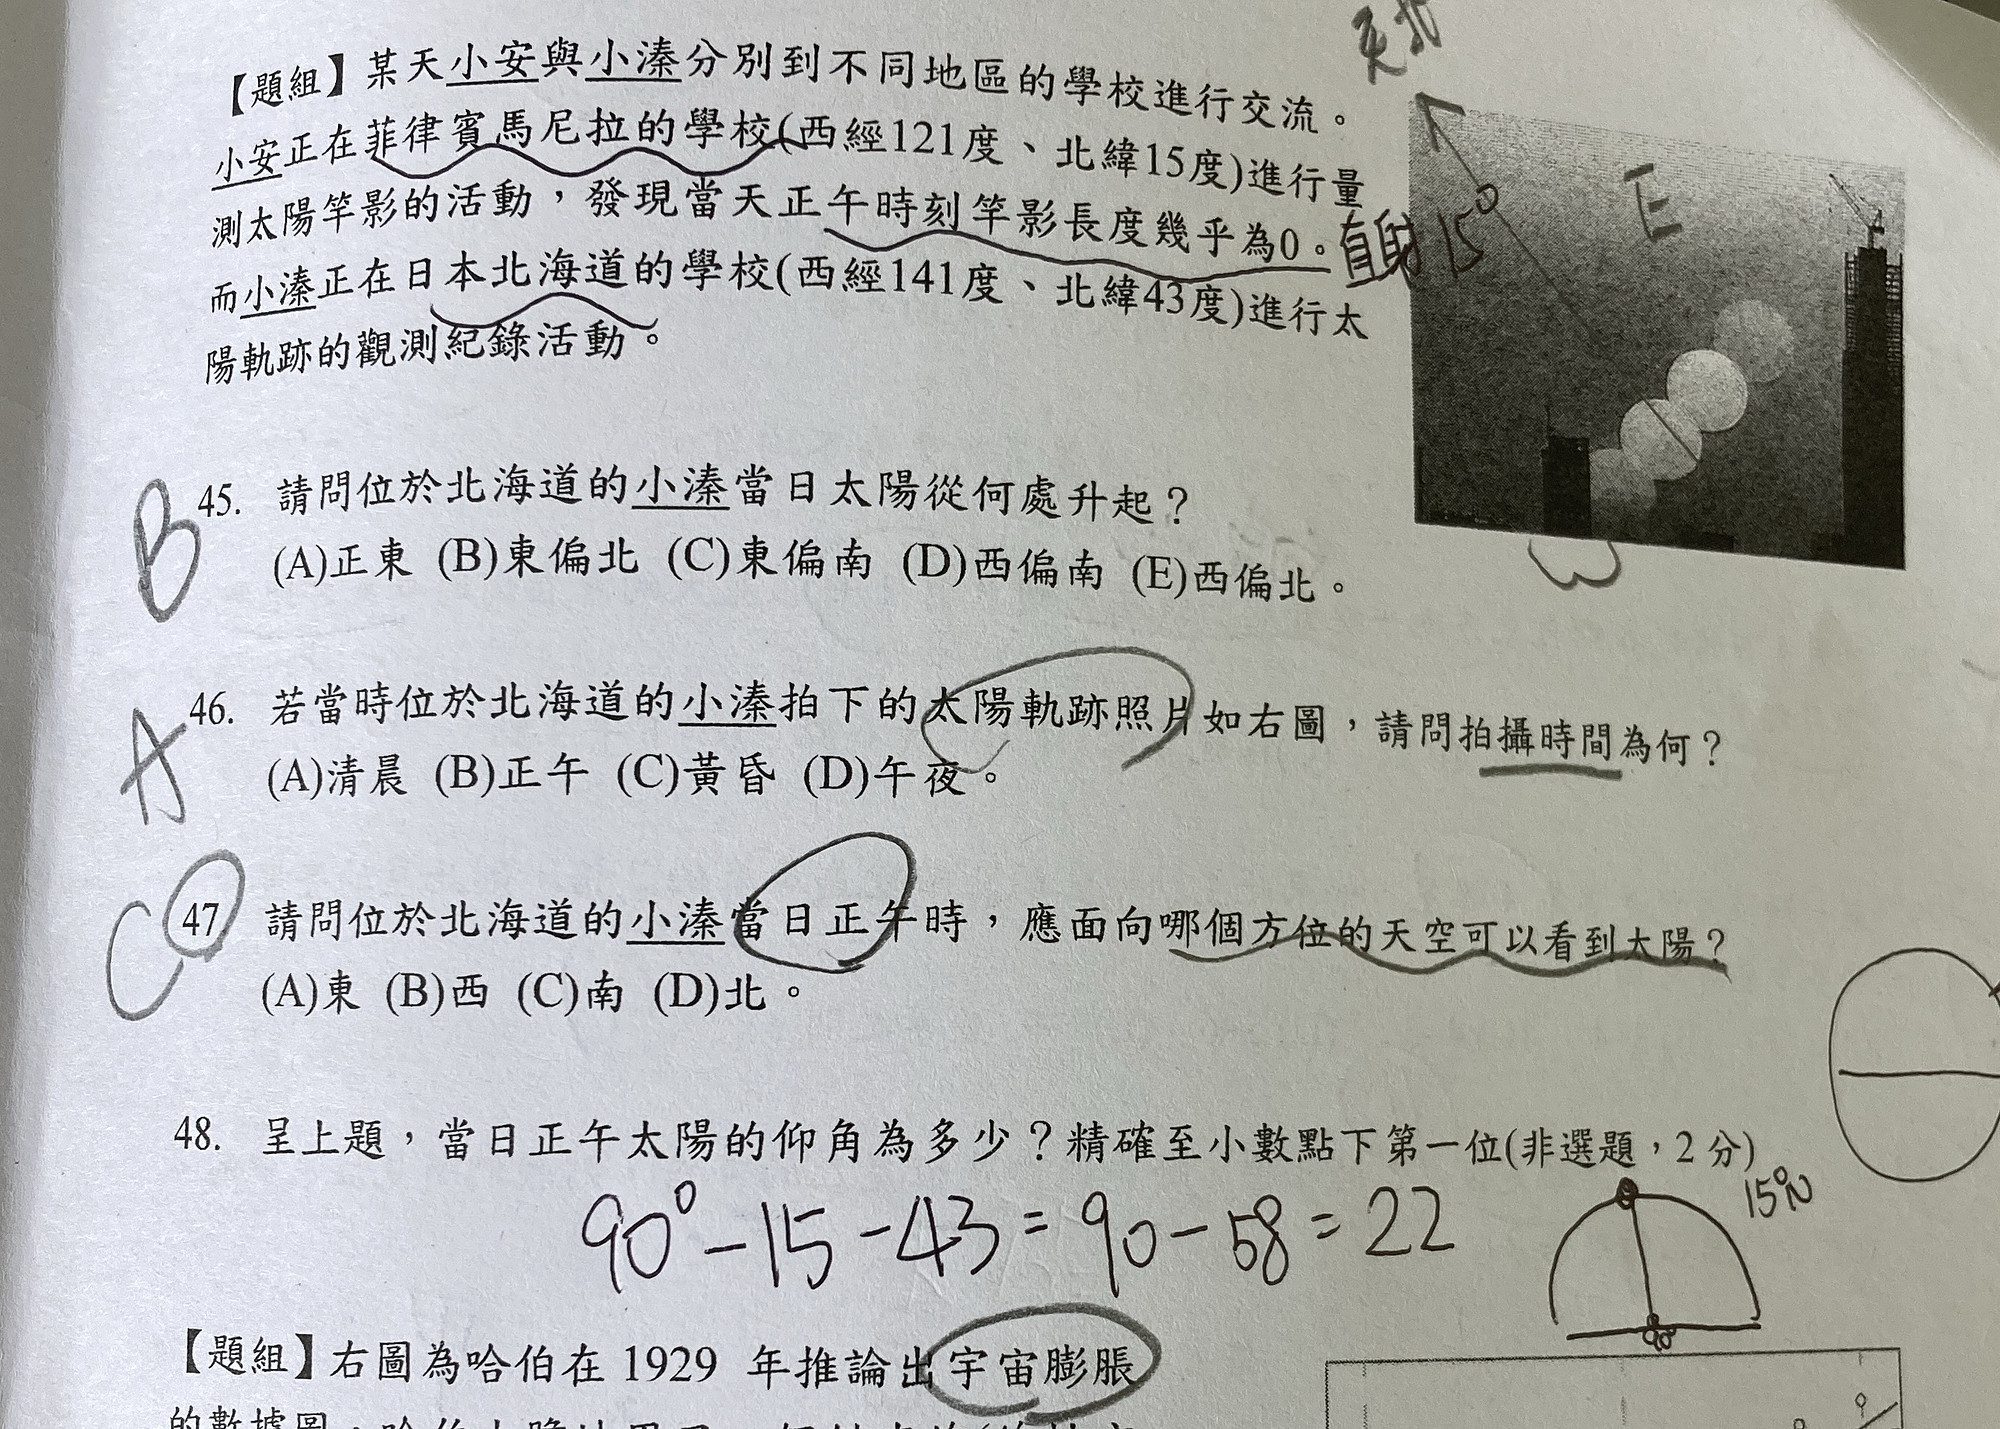 天北
【題組】某天小安與小溱分別到不同地區的學校進行交流。
小安正在菲律賓馬尼拉的學校(西經121度、北緯15度)進行量
測太陽竿影的活動,發現當天正午時刻竿影長度幾乎為0。直射15°
而小溱正在日本北海道的學校(西經141度、北緯43度)進行太
陽軌跡的觀測紀錄活動。
E
B
45. 請問位於北海道的小溱當日太陽從何處升起?
(A)正東 (B)東偏北 (C)東偏南 (D)西偏南 (E)西偏北。
A
46. 若當時位於北海道的小溱拍下的太陽軌跡照片如右圖,請問拍攝時間為何?
(A)清晨 (B)正午 (C)黃昏 (D)午夜。
C
47 請問位於北海道的小溱當日正午時,應面向哪個方位的天空可以看到太陽?
(A)東 (B)西 (C)南 (D)北。
48. 呈上題,當日正午太陽的仰角為多少?精確至小數點下第一位(非選題,2分)
90°-15-43=90-58=22
15°N
90°
【題組】右圖為哈伯在 1929 年推論出宇宙膨脹
的數據圖,